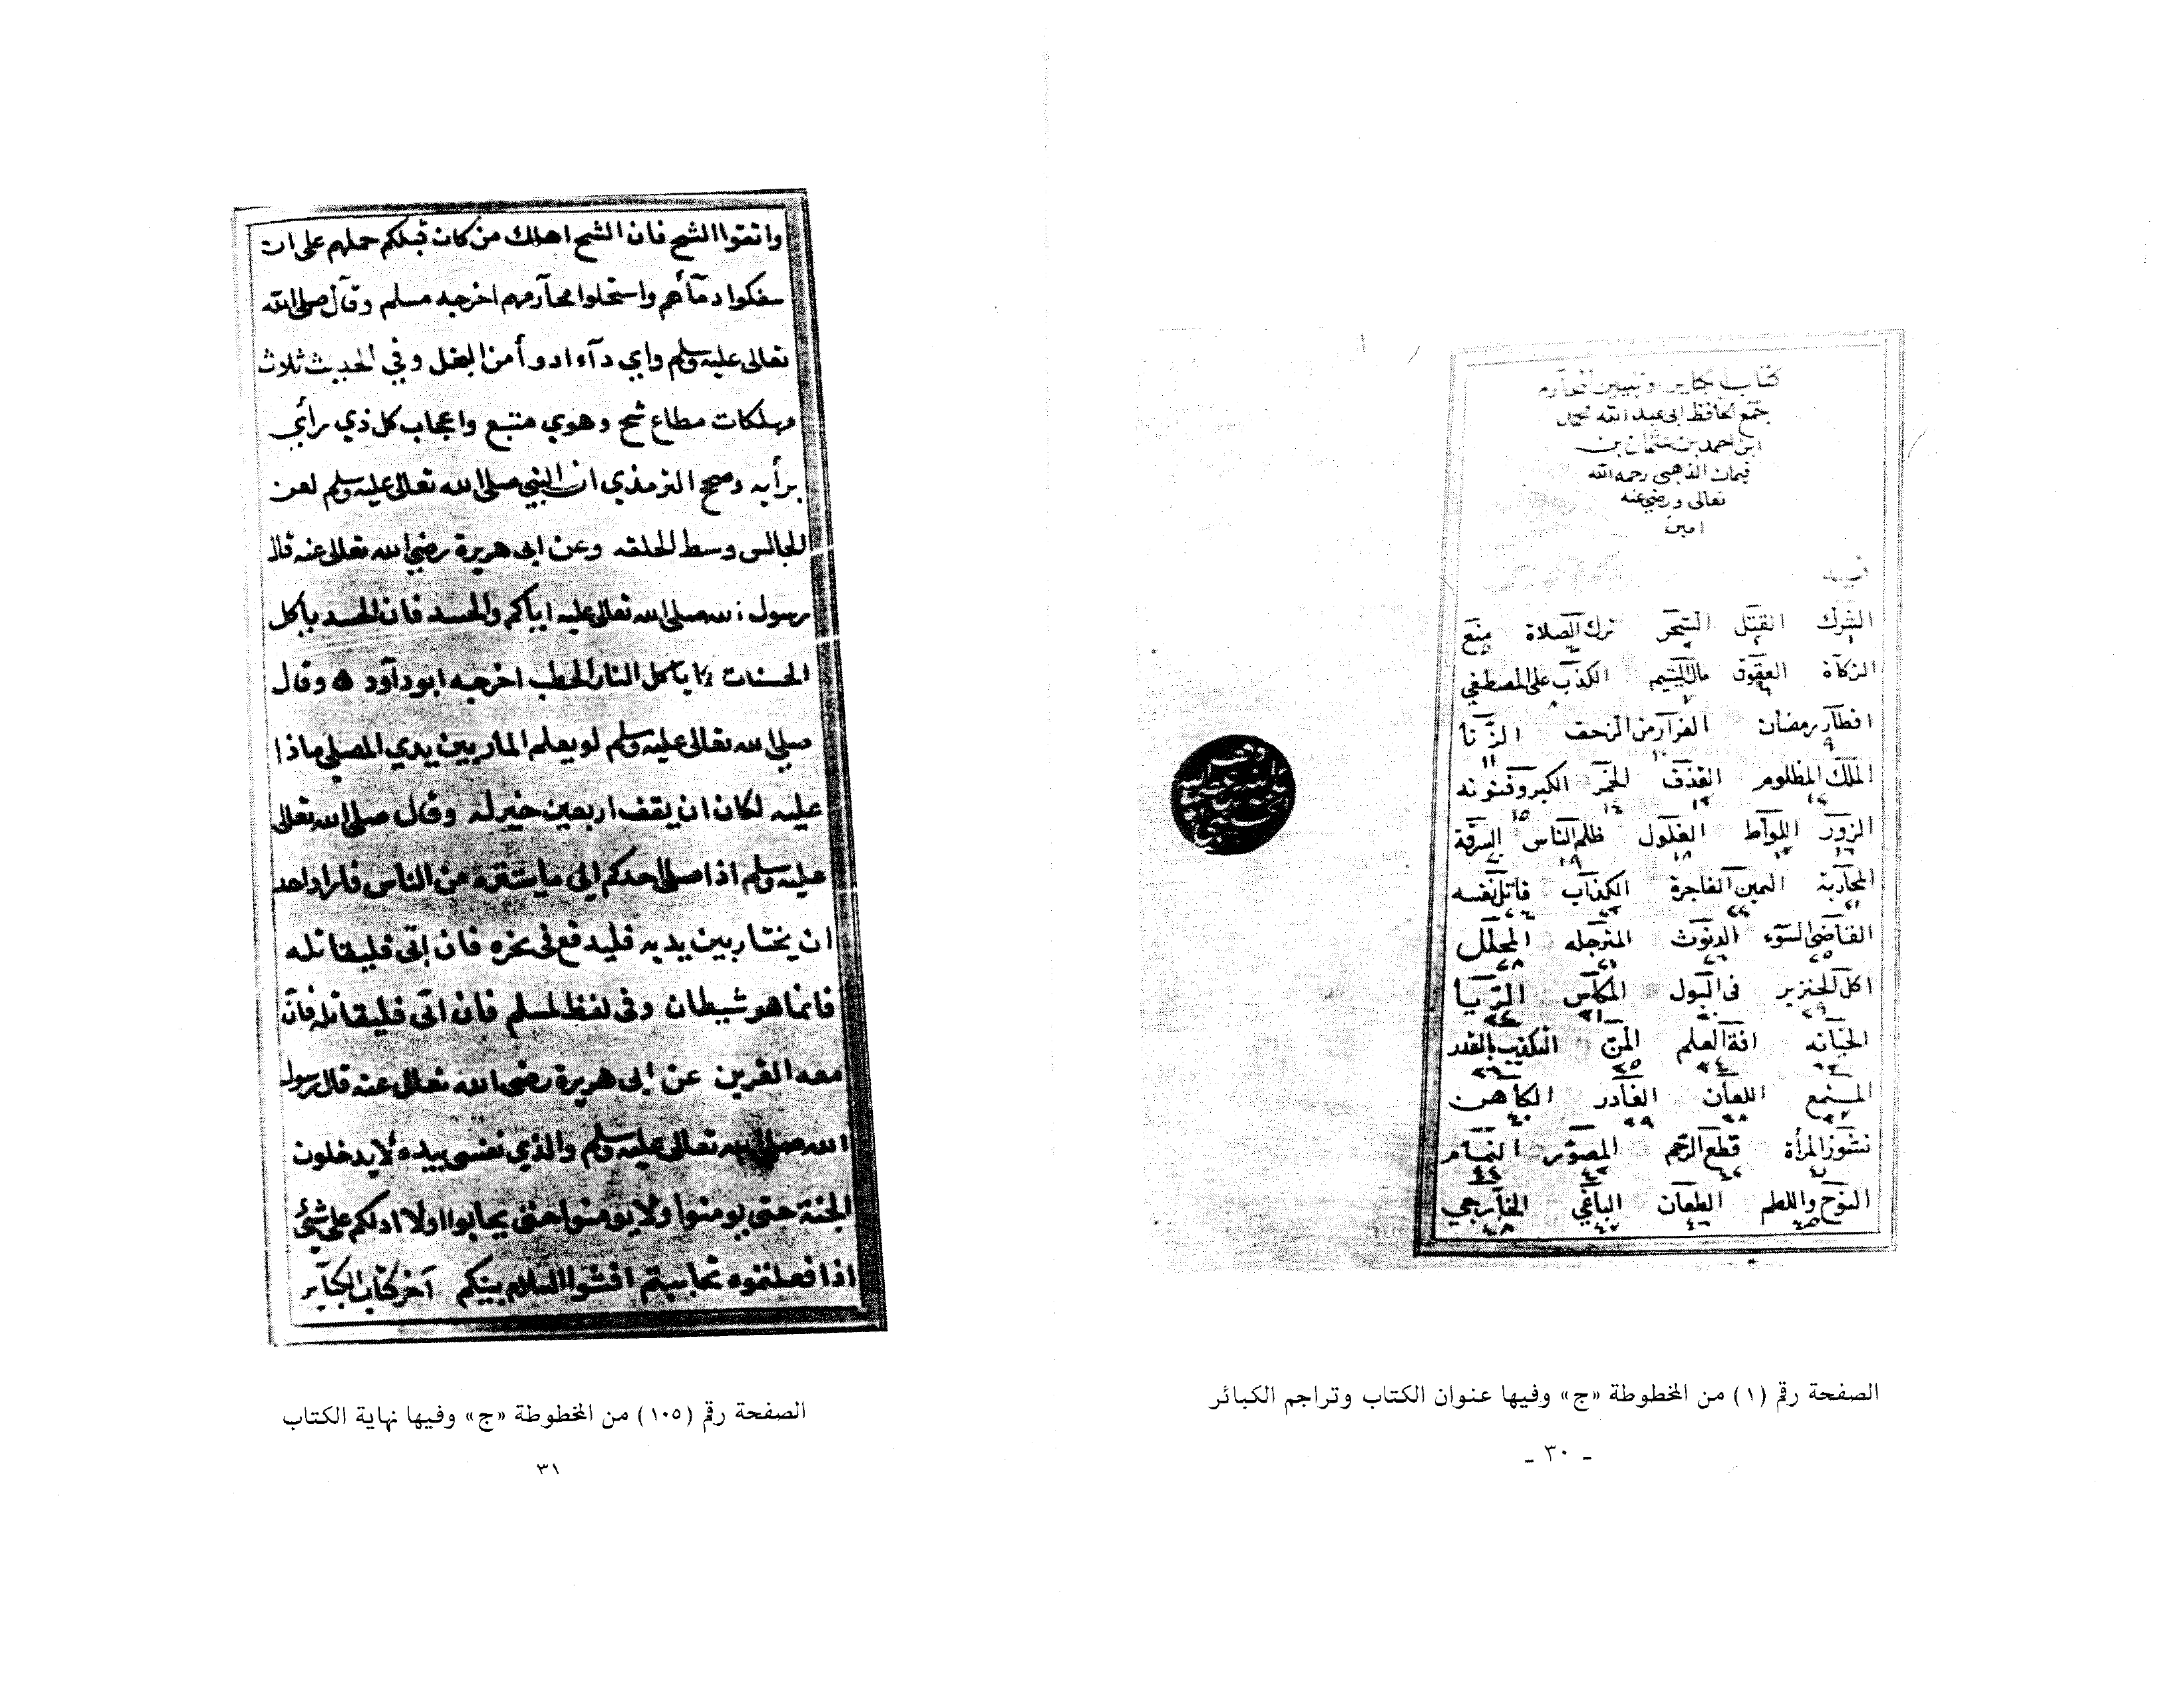 كتاب كباير وتبيين محارم
جمع الحافظ ابى عبد الله محمد
ابن احمد بن عثمان بن
قيماز الذهبى رحمه الله
تعالى ورضي عنه
امين
الشرك القتل السحر ترك الصلاة منع
١ ٢ ٣ ٤ ٥
الزكاة العقوق مال اليتيم الكذب على المصطفي
٦ ٧ ٨
افطار رمضان الفرار من الزحف الزنا
٩ ١٠ ١١
الملك المظلوم القذف الخمر الكبر وفنونه
١٢ ١٣ ١٤ ١٥
الزور اللواط الغلول ظلم الناس السرقة
١٦ ١٧ ١٨ ١٩ ٢٠
المحاربة اليمين الفاجرة الكذاب قاتل نفسه
٢١ ٢٢ ٢٣ ٢٤
القاضى السوء الديوث المترجله المحلل
٢٥ ٢٦ ٢٧ ٢٨
اكل الخنزير فى البول المكاس الريا
٢٩ ٣٠ ٣١ ٣٢
الخيانه افة العلم المن التكذيب بالقدر
٣٣ ٣٤ ٣٥ ٣٦
المستمع اللعان الغادر الكاهن
٣٧ ٣٨ ٣٩ ٤٠
نشوز المرأة قطع الرحم المصور النمام
٤١ ٤٢ ٤٣ ٤٤
النوح واللطم الطعان الباغي الخارجي
٤٥ ٤٦ ٤٧ ٤٨
الصفحة رقم (١) من المخطوطة «ج» وفيها عنوان الكتاب وتراجم الكبائر
ـ ٣٠ ـ
واتقوا الشح فان الشح اهلك من كان قبلكم حملهم على ان
سفكوا دمآهم واستحلوا محارمهم اخرجه مسلم وقال صلى الله
تعالى عليه وسلم واي دآء ادوأ من البخل وفي الحديث ثلاث
مهلكات مطاع شح وهوي متبع واعجاب كل ذي رأي
برأيه وصح الترمذي ان النبي صلى الله تعالى عليه وسلم لعن
الجالس وسط الحلقه وعن ابى هريرة رضي الله تعالى عنه قال
رسول الله صلى الله تعالى عليه اياكم والحسد فان الحسد ياكل
الحسنات كما ياكل النار الحطب اخرجه ابو داود وقال
صلى الله تعالى عليه وسلم لو يعلم المار بين يدي المصلي ماذا
عليه لكان ان يقف اربعين خير له وقال صلى الله تعالى
عليه وسلم اذا صلى احدكم الي ما يستره من الناس فاراد احد
ان يختار بين يديه فليدفع فى نحره فان اتى فليقاتله
فانما هو شيطان وفى لفظ لمسلم فان اتى فليقاتله فان
معه القرين عن ابى هريرة رضى الله تعالى عنه قال رسول
الله صلى الله تعالى عليه وسلم والذي نفسى بيده لا يدخلون
الجنة حتى يومنوا ولا يومنوا حتى يحابوا اولا ادلكم على شئ
اذا فعلتموه تحاببتم افشوا السلام بينكم آخر كتاب الكباير
الصفحة رقم (١٠٥) من المخطوطة «ج» وفيها نهاية الكتاب
٣١